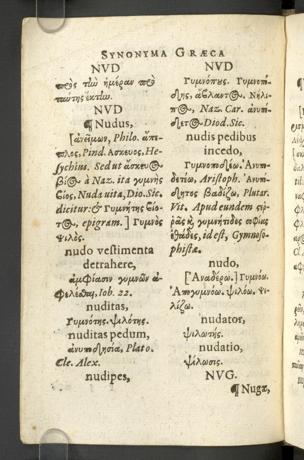 SYNONYMA GRÆCA
NVD
πρὸς τὴν ἡμέραν πρὸ
ταύτης ἑκτην.
NVD
¶ Nudus,
[ἀνείμων, Philo. ἄπε-
πλος, Pind. Ἄσκευος, He-
sychius. Sed ut ἀσκευο
βίος à Naz. ita γυμνὴς
βίος, Nuda uita, Dio. Sic.
dicitur: & Γυμνήτης βίο-
τος, epigram.] Γυμνός
ψιλός.
nudo vestimenta
detrahere,
ἀμφίασιν γυμνῶν ἀ-
φελέσθαι, Iob. 22.
nuditas,
Γυμνότης. ψιλότης.
nuditas pedum,
ἀνυποδησία, Plato.
Cle. Alex.
nudipes,
NVD
Γυμνόπους. Γυμνοπό-
δης, ἄβλαυτος. Νήλι-
πος, Naz. Car. ἀνυπό-
δετος. Diod. Sic.
nudis pedibus
incedo,
Γυμνοποδέω. Ἀνυπο-
δετέω, Aristoph. Ἀνυπό-
δητος βαδίζω, Plutar.
Vit. Apud eundem
γυμνήτιδες σοφίας
id est, Gymnoso-
phistæ.
nudo,
[Ἀναδέρω.] Γυμνόω.
Ἀπογυμνόω. ψιλόω. ψι-
λίζω.
nudator,
ψιλωτής.
nudatio,
ψίλωσις.
NVG.
¶ Nugæ,